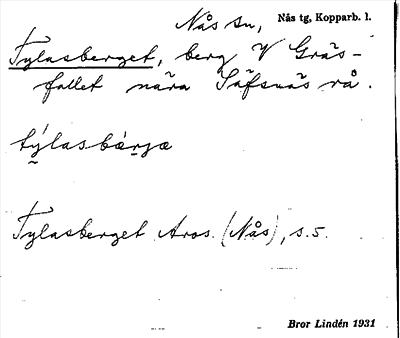 Nås sn, Nås tg, Kopparb. l.
Tylasberget, berg V Gräs-
fallet nära Säfsnäs rå.
týlasbærjæ
Tylasberget Aros. (Nås), s. 5.
Bror Lindén 1931